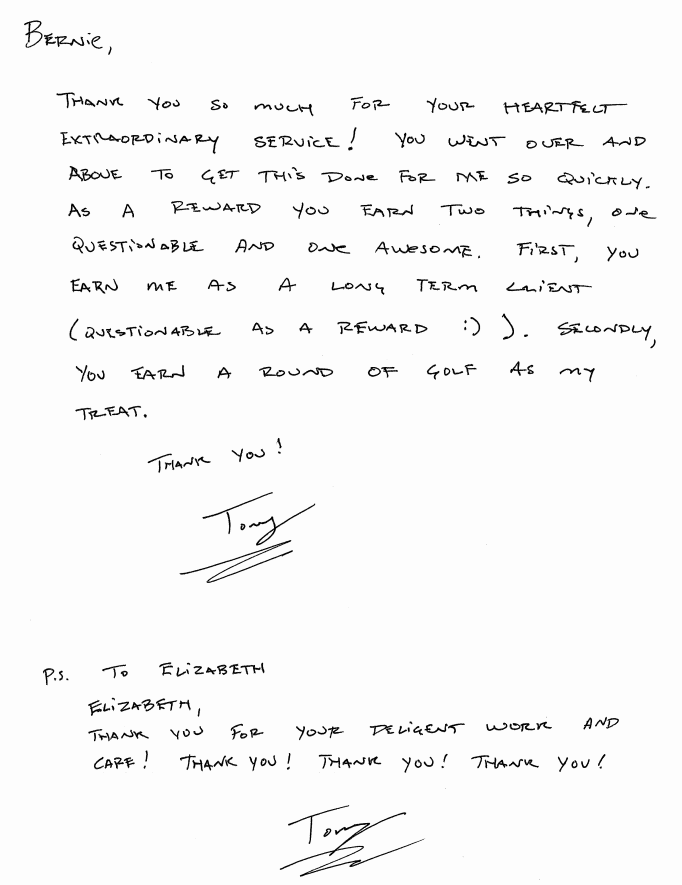 Bernie,
THANK YOU SO MUCH FOR YOUR HEARTFELT
EXTRAORDINARY SERVICE! YOU WENT OVER AND
ABOVE TO GET THIS DONE FOR ME SO QUICKLY.
AS A REWARD YOU EARN TWO THINGS, ONE
QUESTIONABLE AND ONE AWESOME. FIRST, YOU
EARN ME AS A LONG TERM CLIENT
(QUESTIONABLE AS A REWARD :) ). SECONDLY,
YOU EARN A ROUND OF GOLF AS MY
TREAT.
THANK YOU!
Tony
P.S. TO ELIZABETH
ELIZABETH,
THANK YOU FOR YOUR DELIGENT WORK AND
CARE! THANK YOU! THANK YOU! THANK YOU!
Tony